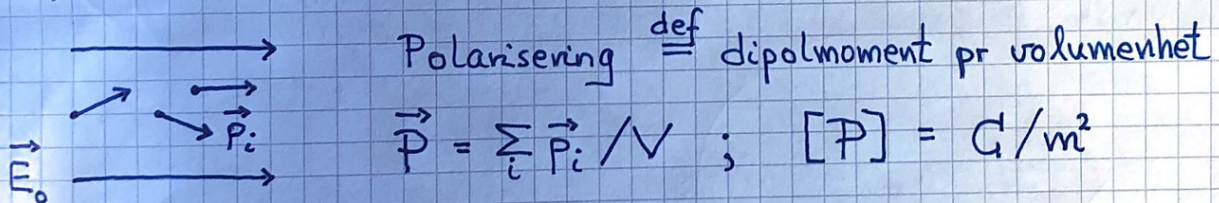 Polarisering def= dipolmoment pr volumenhet
P⃗ = Σᵢ p⃗ᵢ /V ; [P] = C/m²
p⃗ᵢ
E⃗₀